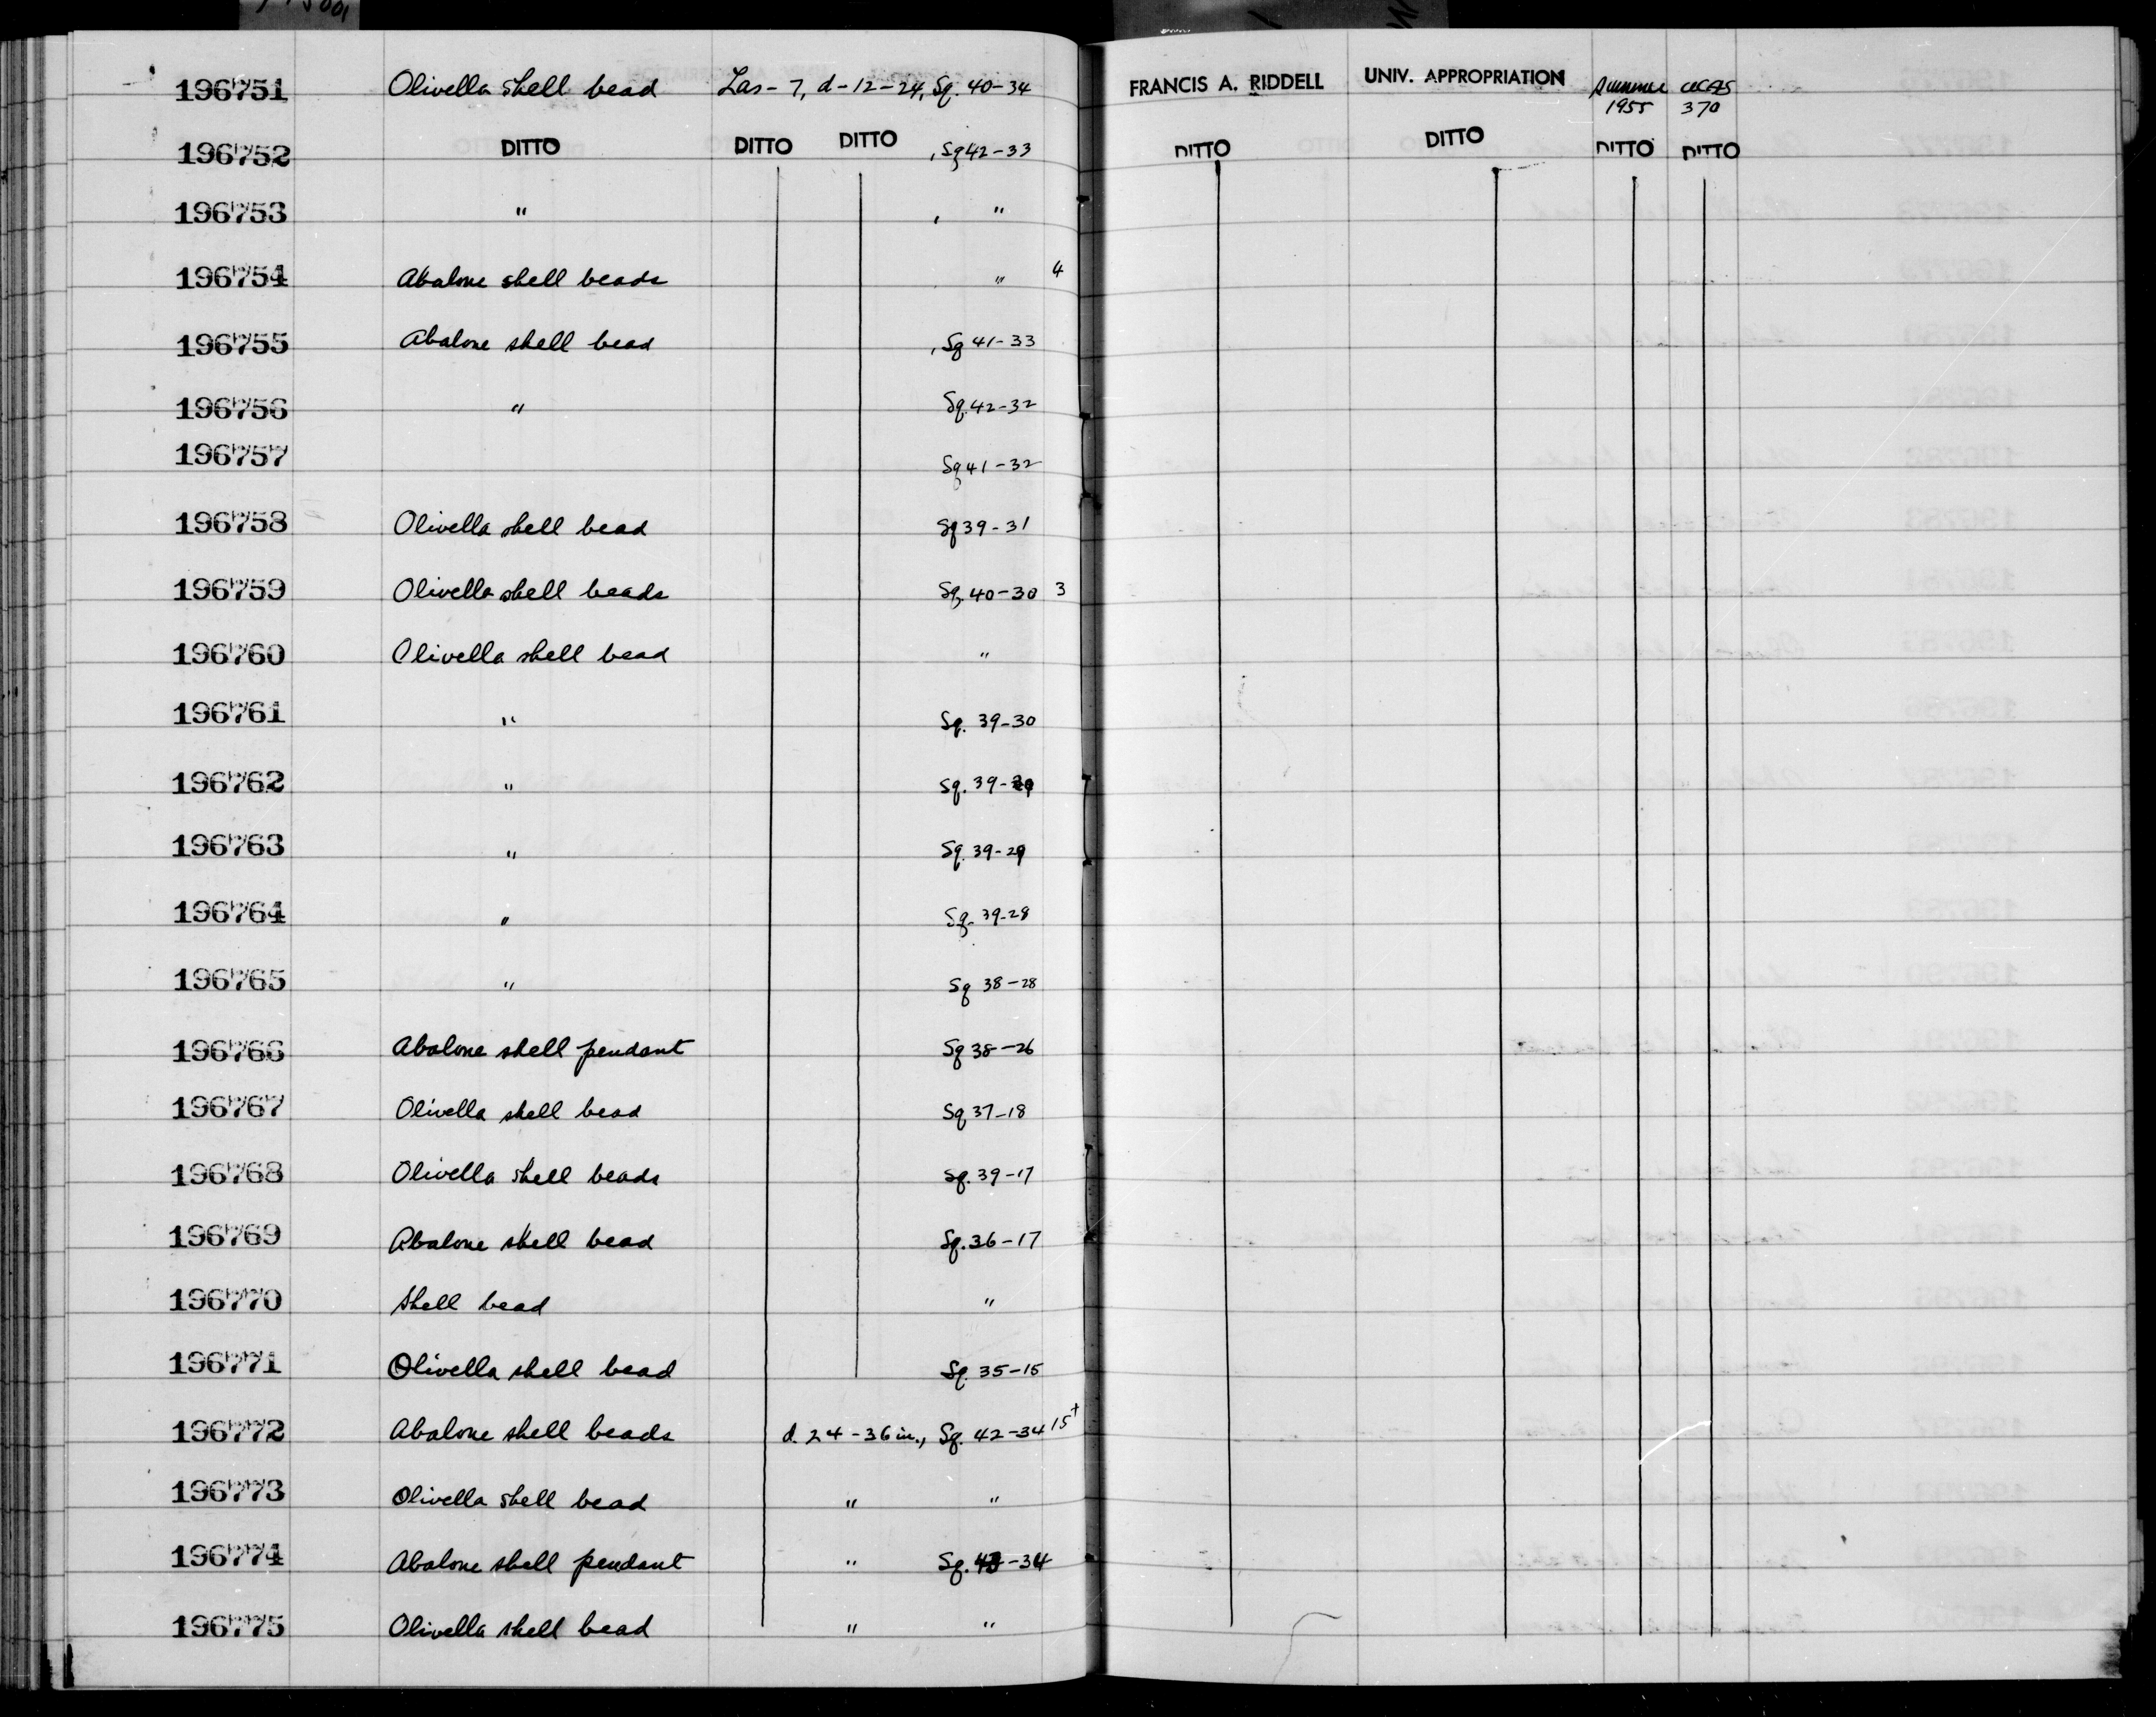 196751 Olivella shell bead Las-7, d-12-24, Sq. 40-34 FRANCIS A. RIDDELL UNIV. APPROPRIATION Summer 1955 UCAS 370
196752 DITTO DITTO DITTO , Sq 42-33 DITTO DITTO DITTO DITTO
196753 " , "
196754 Abalone shell beads " 4
196755 Abalone shell bead , Sq 41-33
196756 " Sq. 42-32
196757 Sq 41-32
196758 Olivella shell bead Sq 39-31
196759 Olivella shell beads Sq. 40-30 3
196760 Olivella shell bead "
196761 " Sq. 39-30
196762 " Sq. 39-29
196763 " Sq. 39-29
196764 " Sq. 39-28
196765 " Sq 38-28
196766 Abalone shell pendant Sq 38-26
196767 Olivella shell bead Sq 37-18
196768 Olivella shell beads Sq. 39-17
196769 Abalone shell bead Sq. 36-17
196770 Shell bead "
196771 Olivella shell bead Sq. 35-15
196772 Abalone shell beads d. 24-36 in., Sq. 42-34 15+
196773 Olivella shell bead " "
196774 Abalone shell pendant " Sq. 43-34
196775 Olivella shell bead " "